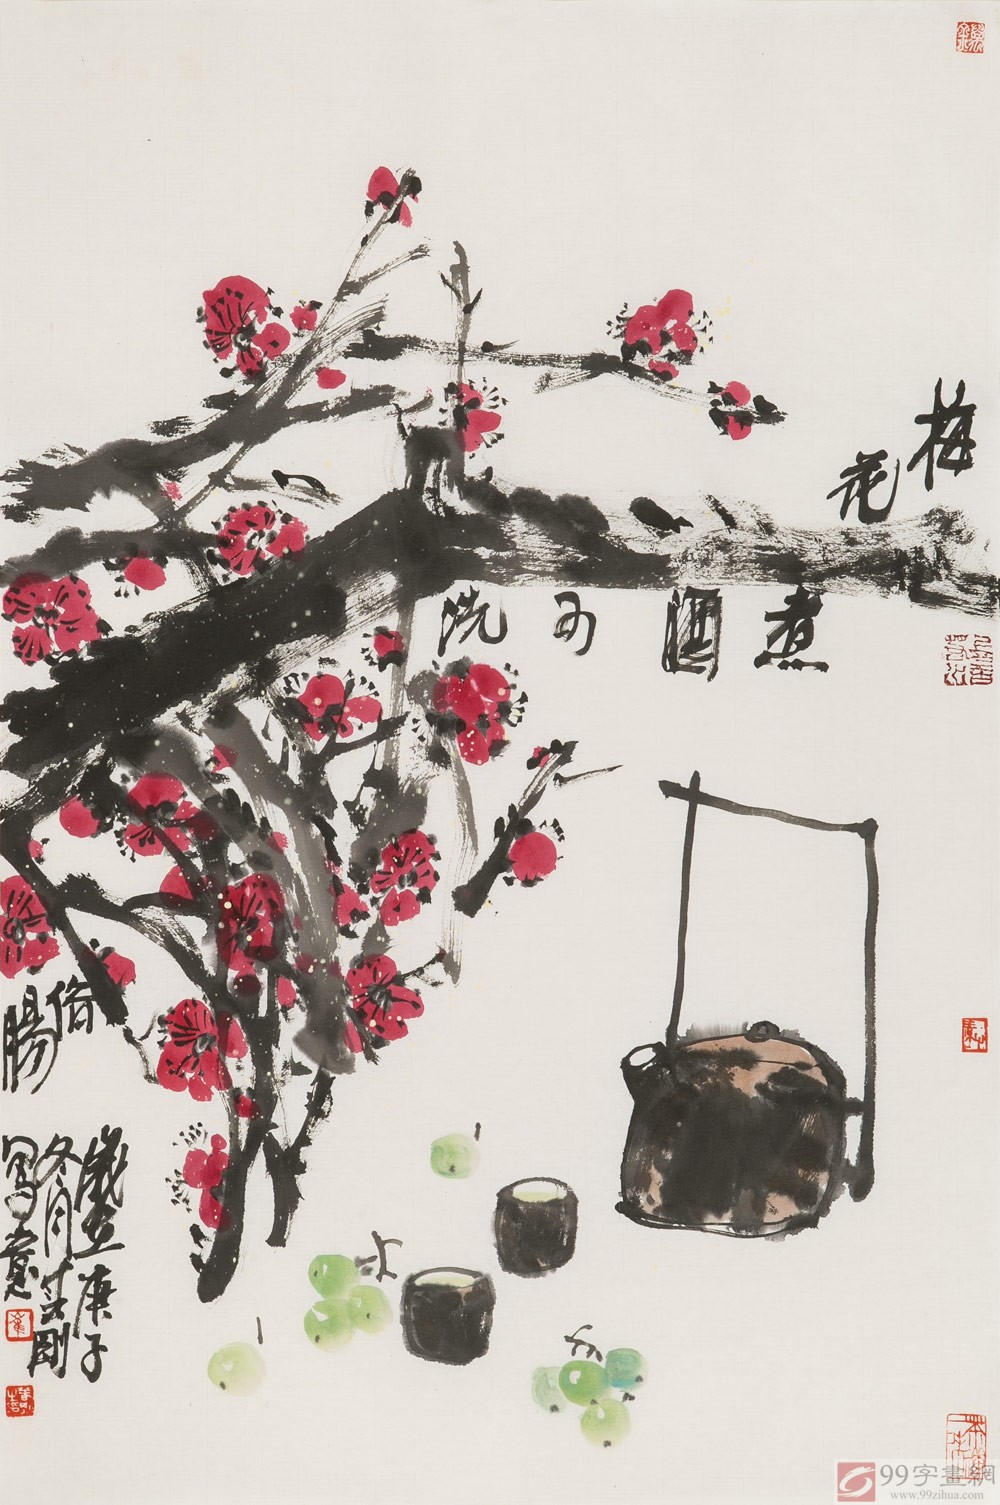 梅
花
煮酒可洗
俗
腸
歲在庚子
冬月
剛
寫意
99字畫網
www.99zihua.com